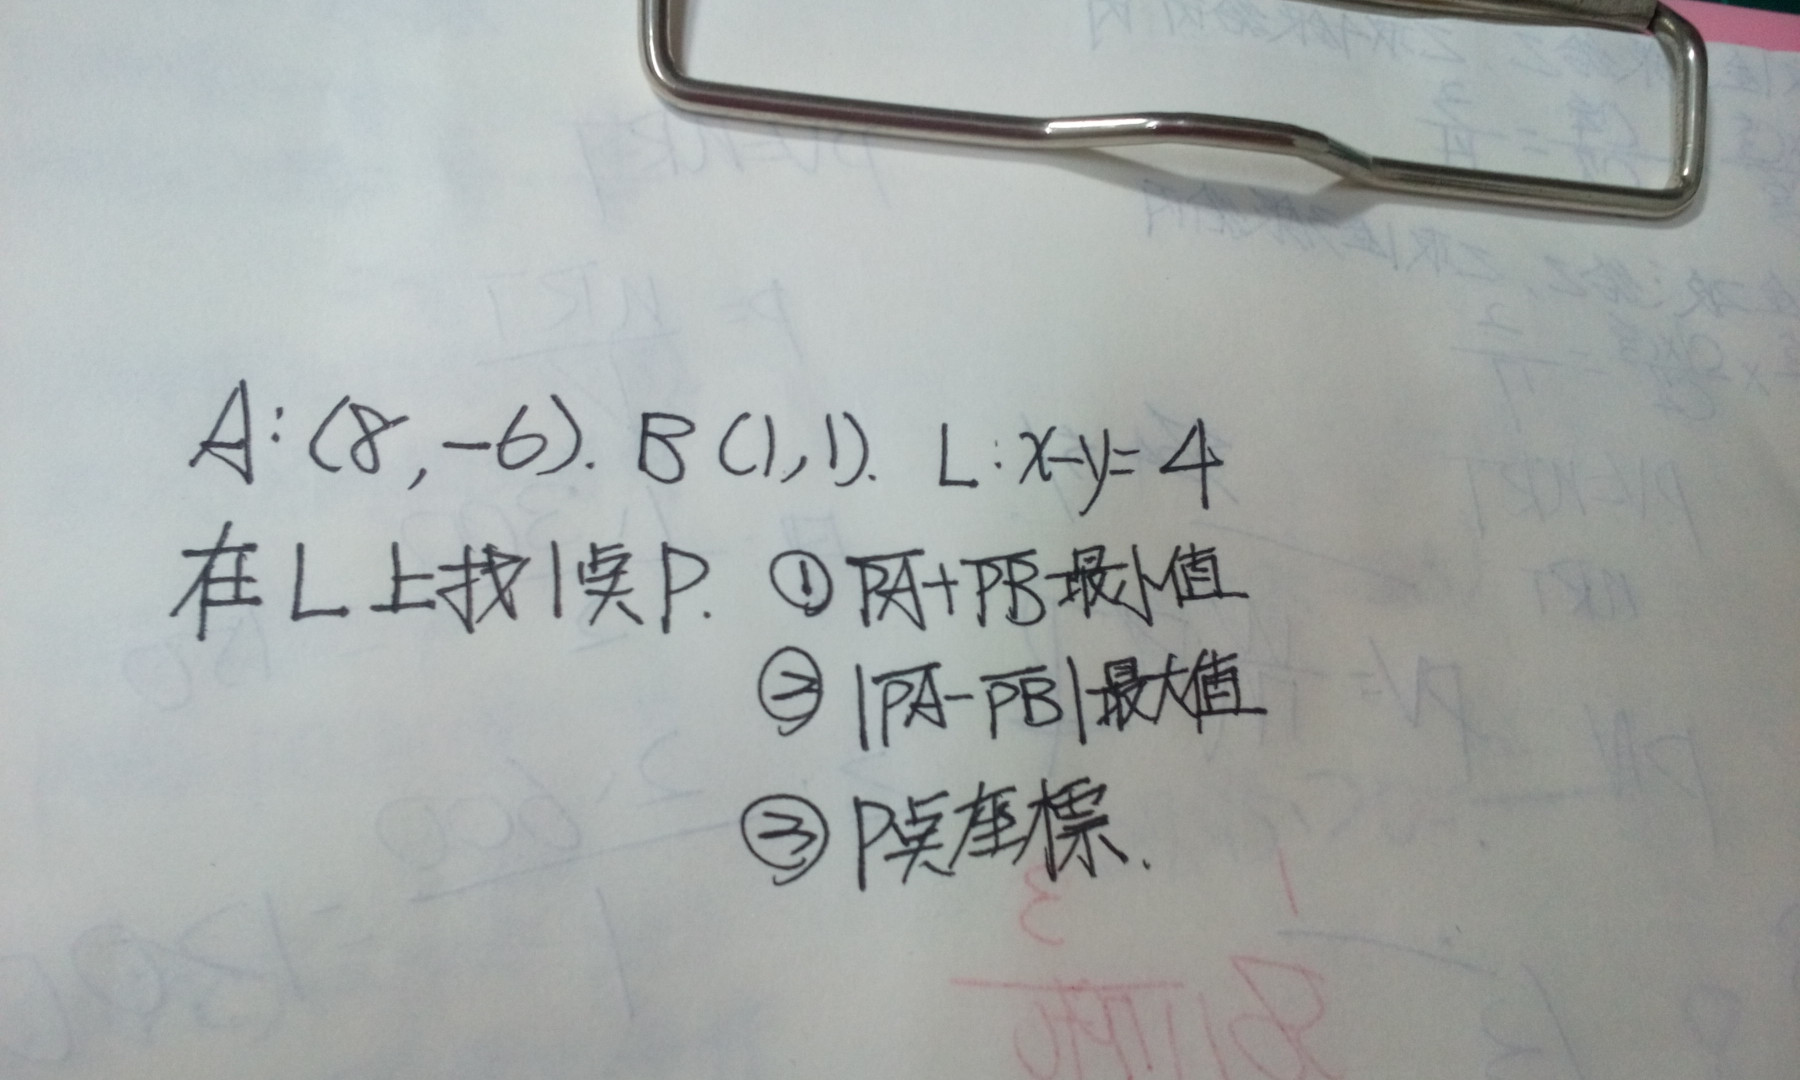 A:(8,-6). B(1,1). L:x-y=4
在L上找1点P. ① PA+PB最小值
② |PA-PB|最大值
③ P点座標.